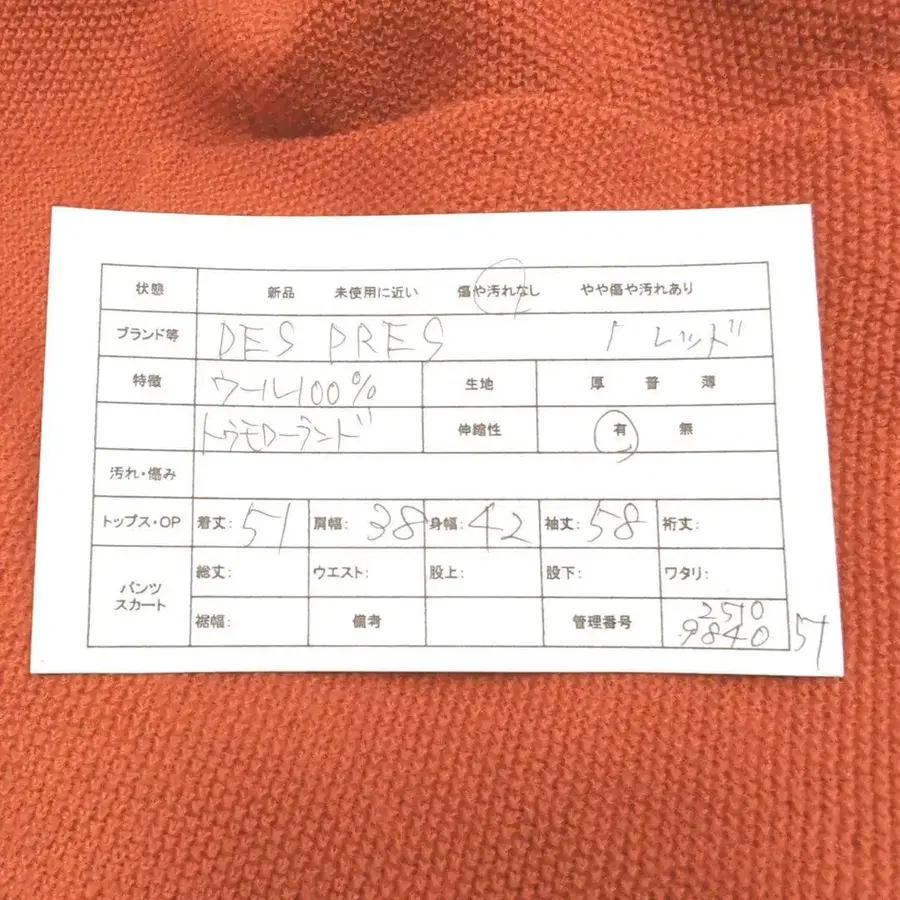 状態 新品 未使用に近い 傷や汚れなし やや傷や汚れあり
ブランド等 DES PRES 1 レッド
特徴 ウール100% 生地 厚 普 薄
トゥモローランド 伸縮性 有 無
汚れ・傷み
トップス・OP 着丈: 51 肩幅: 38 身幅: 42 袖丈: 58 裄丈:
パンツ スカート 総丈: ウエスト: 股上: 股下: ワタリ:
裾幅: 備考 管理番号 2510
9840 51